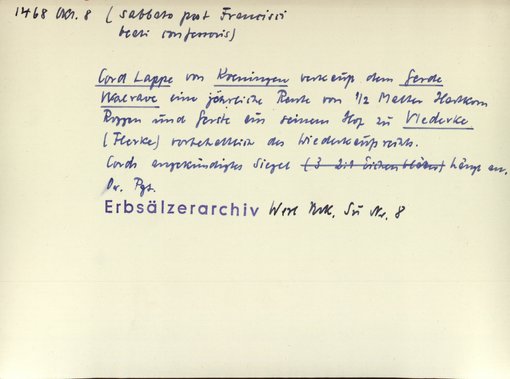 1468 Okt. 8 (sabbato post Francisci
beati confessoris)
Cord Lappe von Koeningen verkauft dem Gerde
Walrave eine jährliche Rente von 1/2 Malter Hartkorn
Roggen und Gerste aus seinem Hof zu Vlederke
(Flerke) vorbehaltlich des Wiederkaufrechts.
Cords angekündigtes Siegel (3 Eichenblätter) hängt an.
Or. Pgt.
Erbsälzerarchiv Werl Nr. 8